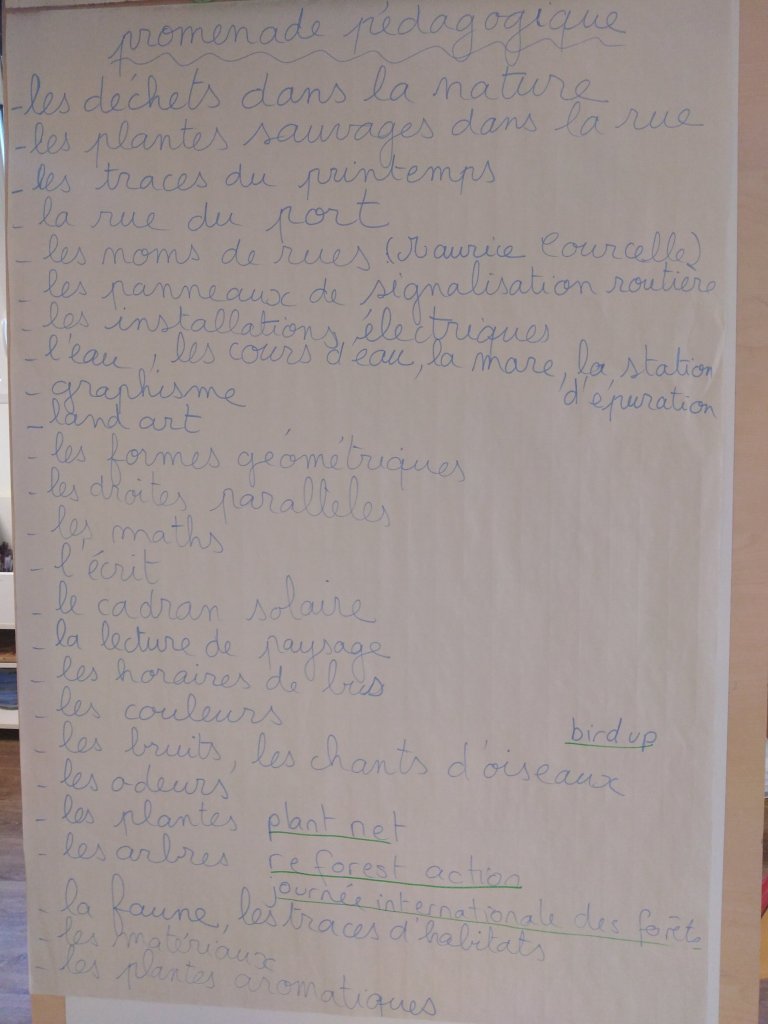 promenade pédagogique
-les déchets dans la nature
-les plantes sauvages dans la rue
- les traces du printemps
- la rue du port
- les noms de rues (Maurice Courcelle)
- les panneaux de signalisation routière
- les installations électriques
- l'eau, les cours d'eau, la mare, la station
d'épuration
- graphisme
- land art
- les formes géométriques
- les droites paralleles
- les maths
- l'écrit
- le cadran solaire
- la lecture de paysage
- les horaires de bus
- les couleurs
bird up
- les bruits, les chants d'oiseaux
- les odeurs
- les plantes plant net
- les arbres reforest action
journée internationale des forêts
- la faune, les traces d'habitats
- les matériaux
- les plantes aromatiques